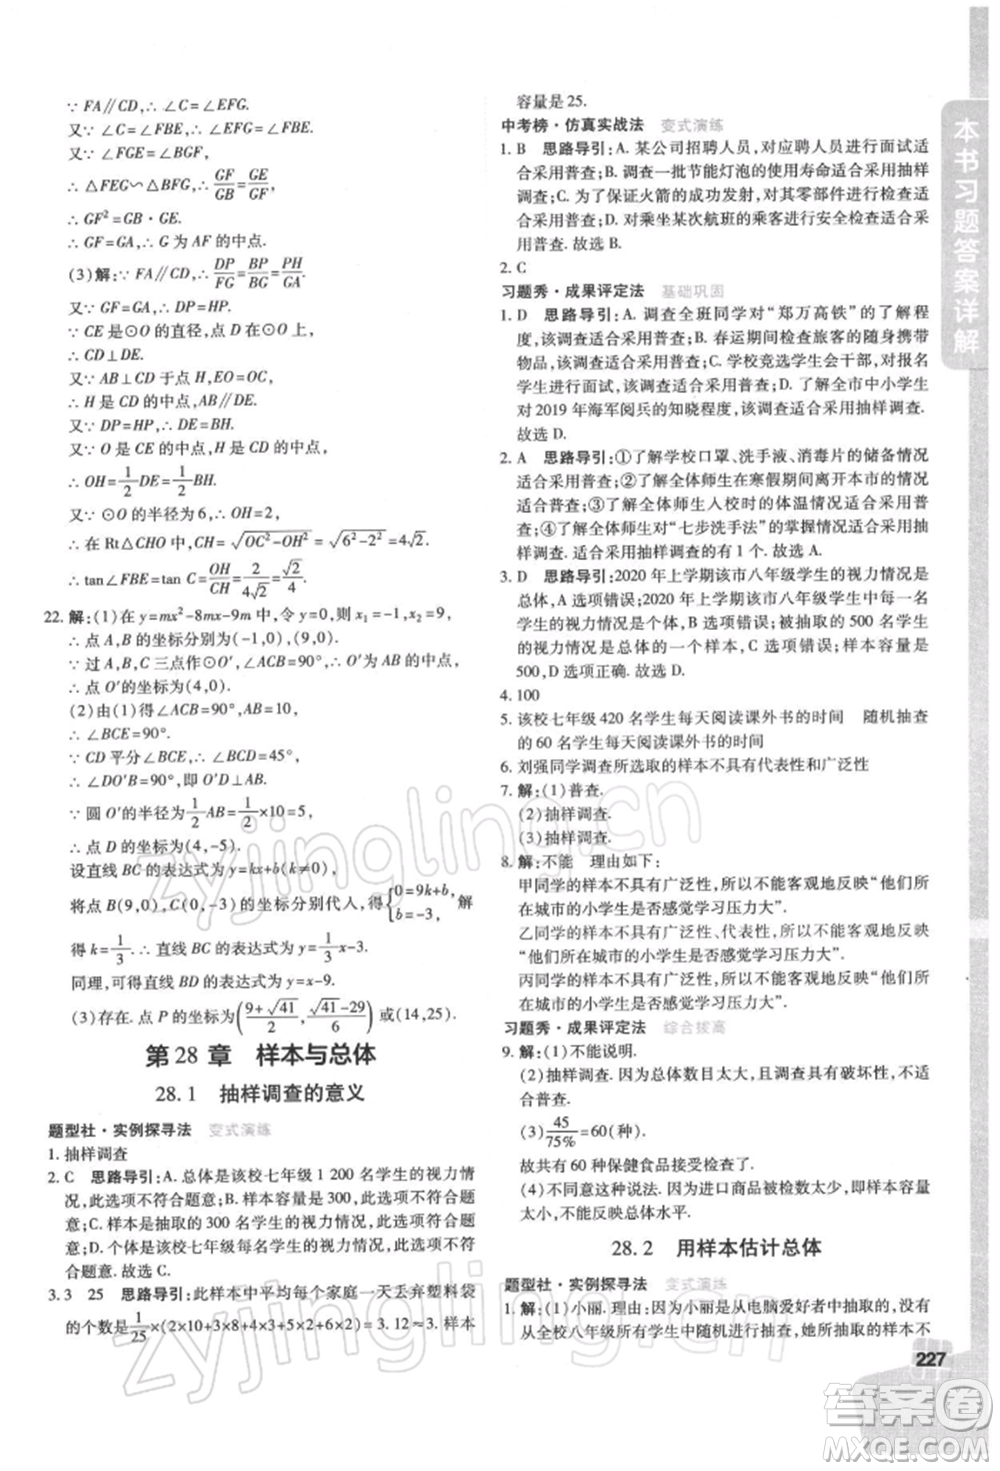 ∵FA∥CD,∴∠C=∠EFG.
又∵∠C=∠FBE,∴∠FBE=∠EFG.
又∵∠FGE=∠BGF,
∴△FEG∽△BFG,∴GF/GB=GE/GF.
∴GF²=GB·GE.
∴GF=GA,∴G 为 AF 的中点.
(3)解:∵FA∥CD,∴DP/FG=BP/BG=PH/GA.
∵GF=GA,∴DP=PH.
∵CE 是⊙O 的直径,点 D 在⊙O 上,
∴CD⊥DE.
又∵AB⊥CD 于点 H,CH=DH,
∴H 是 CD 的中点,AB∥DE.
又∵DP=HP,∴DE=BH.
又∵O 是 CE 的中点,H 是 CD 的中点,
∴OH=1/2DE=1/2BH.
又∵⊙O 的半径为 6,∴OH=2,
∴在 Rt△CHO 中,CH=√(OC²−OH²)=√(6²−2²)=4√2.
∴tan∠FBE=tan C=OH/CH=2/(4√2)=√2/4.
22. 解:(1)在 y=mx²-8mx-9m 中,令 y=0,则 x₁=-1,x₂=9.
∴点 A,B 的坐标分别为(-1,0),(9,0).
∵过 A,B,C 三点作⊙O′,∴∠ACB=90°,AB 是直径.
∴点 O′的坐标为(4,0).
(2)由(1)得∠ACB=90°,
∴∠BCE=90°.
∵CD 平分∠BCE,∴∠BCD=45°.
∴∠DO′B=90°,即 O′D⊥AB.
∵圆 O′的半径为1/2AB=1/2×10=5,
∴点 D 的坐标为(4,-5).
设直线 BC 的表达式为 y=kx+b(k≠0),
将点 B(9,0),C(0,-3)的坐标分别代入,得{0=9k+b, b=-3, 解
得 k=1/3.∴直线 BC 的表达式为 y=1/3x-3.
同理,可得直线 BD 的表达式为 y=x-9.
(3)存在.点 P 的坐标为((9+√41)/2,(√41-29)/6)或(14,25).
第 28 章 样本与总体
28.1 抽样调查的意义
题型社·实例探寻法 变式演练
1. 抽样调查
2. C 思路导引:A. 总体是该校七年级 1 200 名学生的视力情
况,此选项不符合题意;B. 样本容量是 300,此选项不符合题
意;C. 样本是抽取的 300 名学生的视力情况,此选项符合题意;
D. 个体是该校七年级每一名学生的视力情况,此选项不符合
题意.故选 C.
3. 3 25 思路导引:此样本中平均每个家庭一天丢弃塑料袋
的个数是1/25×(2×10+3×8+4×6+5×2)=3.12≈3.样本
容量是 25.
中考榜·仿真实战法 变式演练
1. B 思路导引:A. 某公司招聘人员,对应聘人员进行面试适
合采用普查;B. 调查一批节能灯泡的使用寿命适合采用抽样
调查;C. 为了保证火箭的成功发射,对其零部件进行检查适合
采用普查;D. 对乘坐某次航班的乘客进行安全检查适合采
用普查.故选 B.
2. C
习题秀·成果评定法 基础巩固
1. D 思路导引:A. 调查全班同学对“郑万高铁”的了解程
度,该调查适合采用普查;B. 春运期间检查旅客的随身携带
物品,该调查适合采用普查;C. 学校竞选学生会干部,对报名
学生进行面试,该调查适合采用普查;D. 了解全市中小学生
对 2019 年海军阅兵的知晓程度,该调查适合采用抽样调查.
故选 D.
2. A 思路导引:①了解学校口罩、洗手液、消毒片的储备情况
适合采用普查;②了解全体师生在寒假期间离开本市的情况
适合采用普查;③了解全体师生入校时的体温情况适合采用普
查;④了解全体师生对“七步洗手法”的掌握情况适合采用抽
样调查.故适合采用抽样调查的有 1 个.故选 A.
3. D 思路导引:2020 年上学期该市八年级学生的视力情况是
总体,A 选项错误;2020 年上学期该市八年级学生中每一名学
生的视力情况是个体,B 选项错误;被抽取的 500 名学生的视
力情况是总体的一个样本,C 选项错误;样本容量是
500,D 选项正确.故选 D.
4. 100
5. 该校七年级 420 名学生每天阅读课外书的时间 随机抽查
的 60 名学生每天阅读课外书的时间
6. 刘强同学调查所选取的样本不具有代表性和广泛性
7. 解:(1)普查.
(2)抽样调查.
(3)抽样调查.
8. 解:不能 理由如下:
甲同学的样本不具有广泛性,所以不能客观地反映“他们所
在城市的小学生是否感觉学习压力大”.
乙同学的样本不具有广泛性、代表性,所以不能客观地反映
“他们所在城市的小学生是否感觉学习压力大”.
丙同学的样本不具有广泛性,所以不能客观地反映“他们所
在城市的小学生是否感觉学习压力大”.
习题秀·成果评定法 综合拔高
9. 解:(1)不能说明.
(2)抽样调查. 因为总体数目太大,且实验具有破坏性,不适
合普查.
(3)45/75%=60(种).
故共有 60 种保健食品接受检查.
(4)不同意这种说法. 因为进口商品被检数太少,即样本容量
太小,不能反映总体水平.
28.2 用样本估计总体
题型社·实例探寻法 变式演练
1. 解:(1)小丽. 理由:因为小丽是从电脑爱好者中抽取的,没有
从全校八年级所有学生中随机进行抽查,她所抽取的样本不
本书习题答案详解
227
zyjingling.cn
zyjingling.cn
答案圈
MXQE.COM